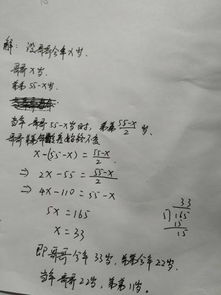 解：设哥哥今年x岁.
哥哥x岁
弟弟55-x岁
当年哥哥55-x岁时, 弟弟(55-x)/2岁.
x-(55-x)=(55-x)/2
⇒ 2x-55=(55-x)/2
⇒ 4x-110=55-x
5x=165
x=33
33
5)165
15
15
即哥哥今年33岁, 弟弟今年22岁.
当年哥哥22岁, 弟弟11岁.